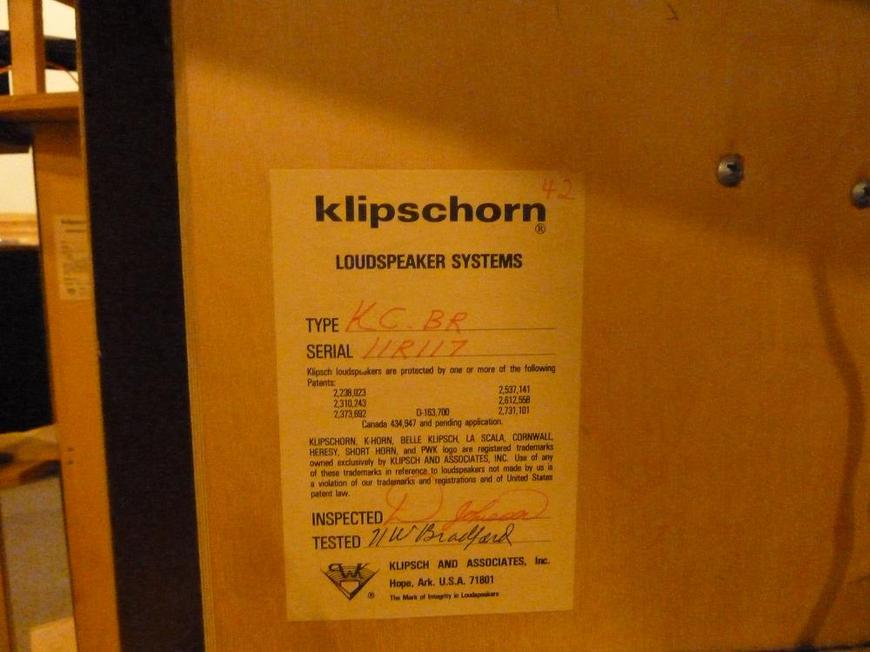 42
klipschorn
®
LOUDSPEAKER SYSTEMS
TYPE KC-BR
SERIAL 11R117
Klipsch loudspeakers are protected by one or more of the following
Patents:
2,238,023 2,537,141
2,310,243 2,612,558
2,373,692 D-163,700 2,731,101
Canada 434,947 and pending application.
KLIPSCHORN, K-HORN, BELLE KLIPSCH, LA SCALA, CORNWALL,
HERESY, SHORT HORN, and PWK logo are registered trademarks
owned exclusively by KLIPSCH AND ASSOCIATES, INC. Use of any
of these trademarks in reference to loudspeakers not made by us is
a violation of our trademarks and registrations and of United States
patent law.
INSPECTED D Johnson
TESTED NW Bradford
PWK ®
KLIPSCH AND ASSOCIATES, Inc.
Hope, Ark. U.S.A. 71801
The Mark of Integrity in Loudspeakers